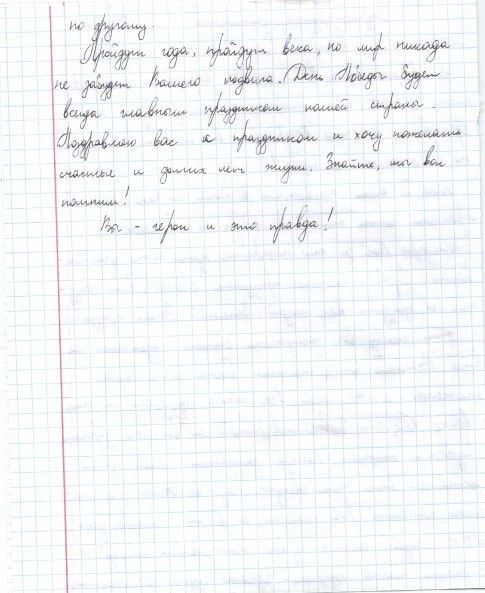 по другому.
Пройдут года, пройдут века, но мир никогда
не забудет Вашего подвига. День Победы будет
всегда главным праздником нашей страны.
Поздравляю вас с праздником и хочу пожелать
счастье и долгих лет жизни. Знайте, мы вас
помним!
Вы - герои и это правда!